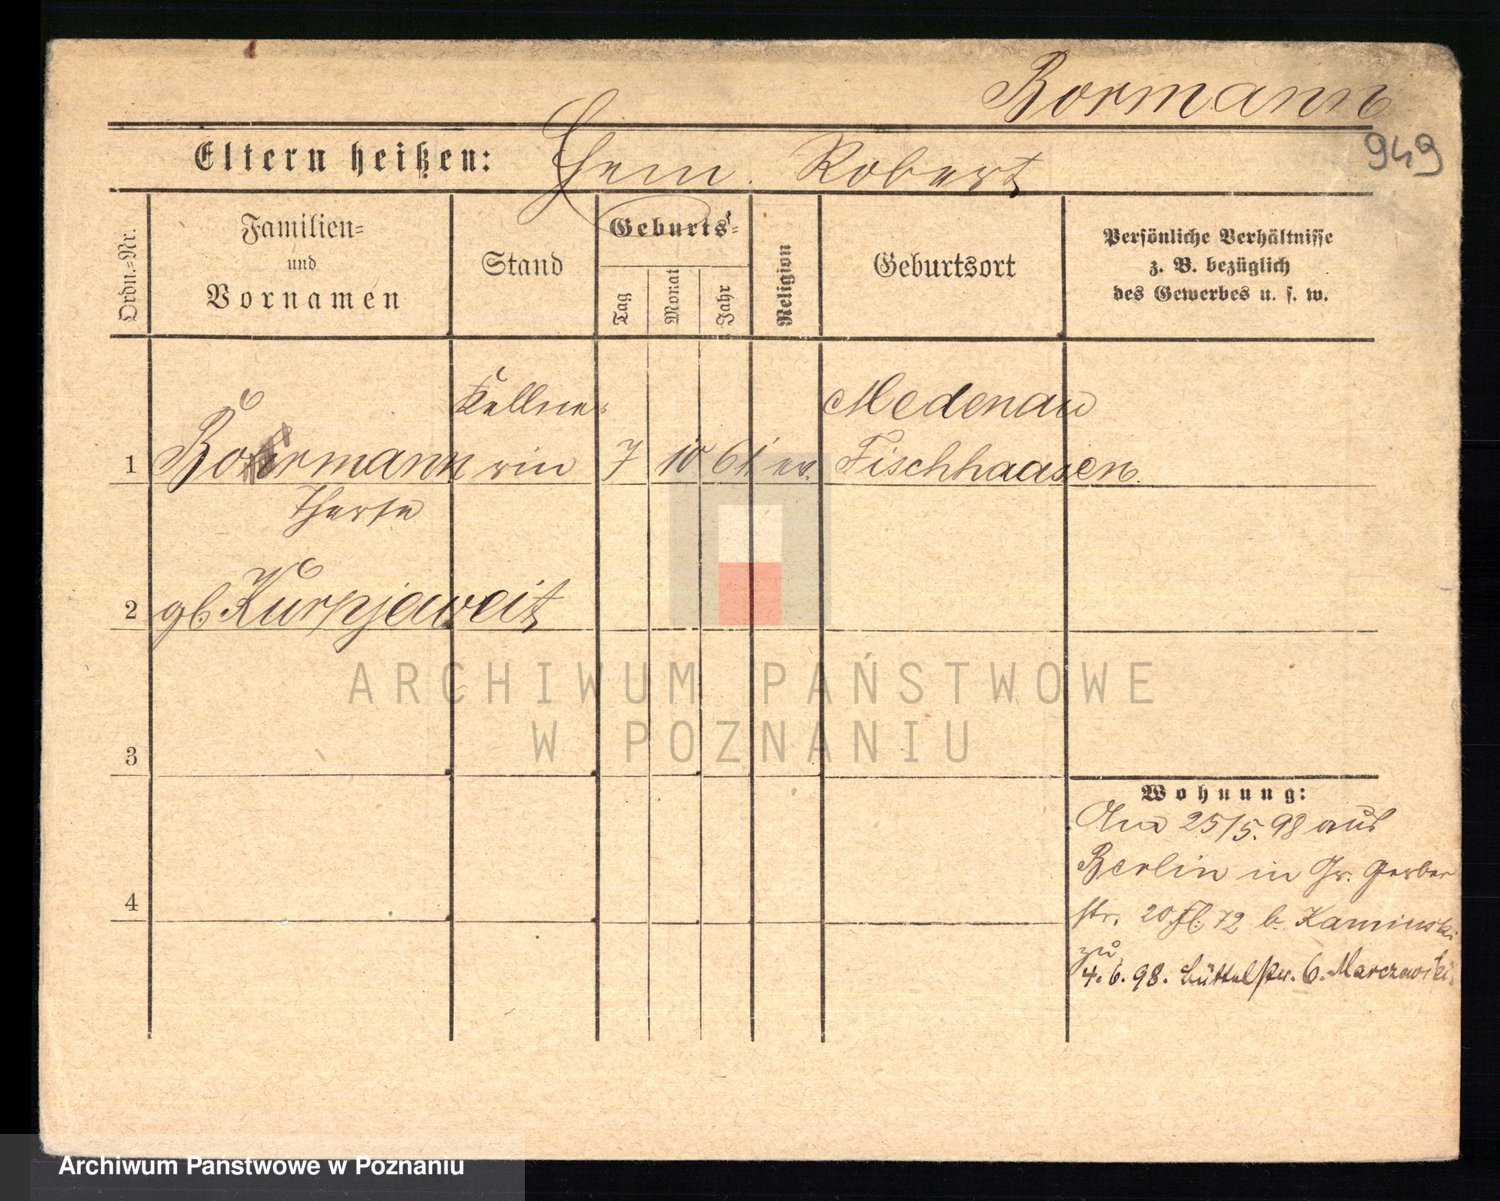 Bormann
949
Eltern heißen: Robert
Ordn.-Nr.
Familien-
und
Vornamen
Stand
Geburts-
Tag
Monat
Jahr
Religion
Geburtsort
Persönliche Verhältnisse
z. B. bezüglich
des Gewerbes u. s. w.
Kellne- Medenau
1 Bormann rin 7 10 61 ev. Fischhaasen
Therse
2 gb Kurpjeweit
3
4
Wohnung:
25/5. 98 aus
Berlin in Gr. Gerber
str. 20 72 b. Kaminski
zu
4.6.98. Büttelstr. 6. Marczewski
ARCHIWUM PAŃSTWOWE
W POZNANIU
Archiwum Państwowe w Poznaniu